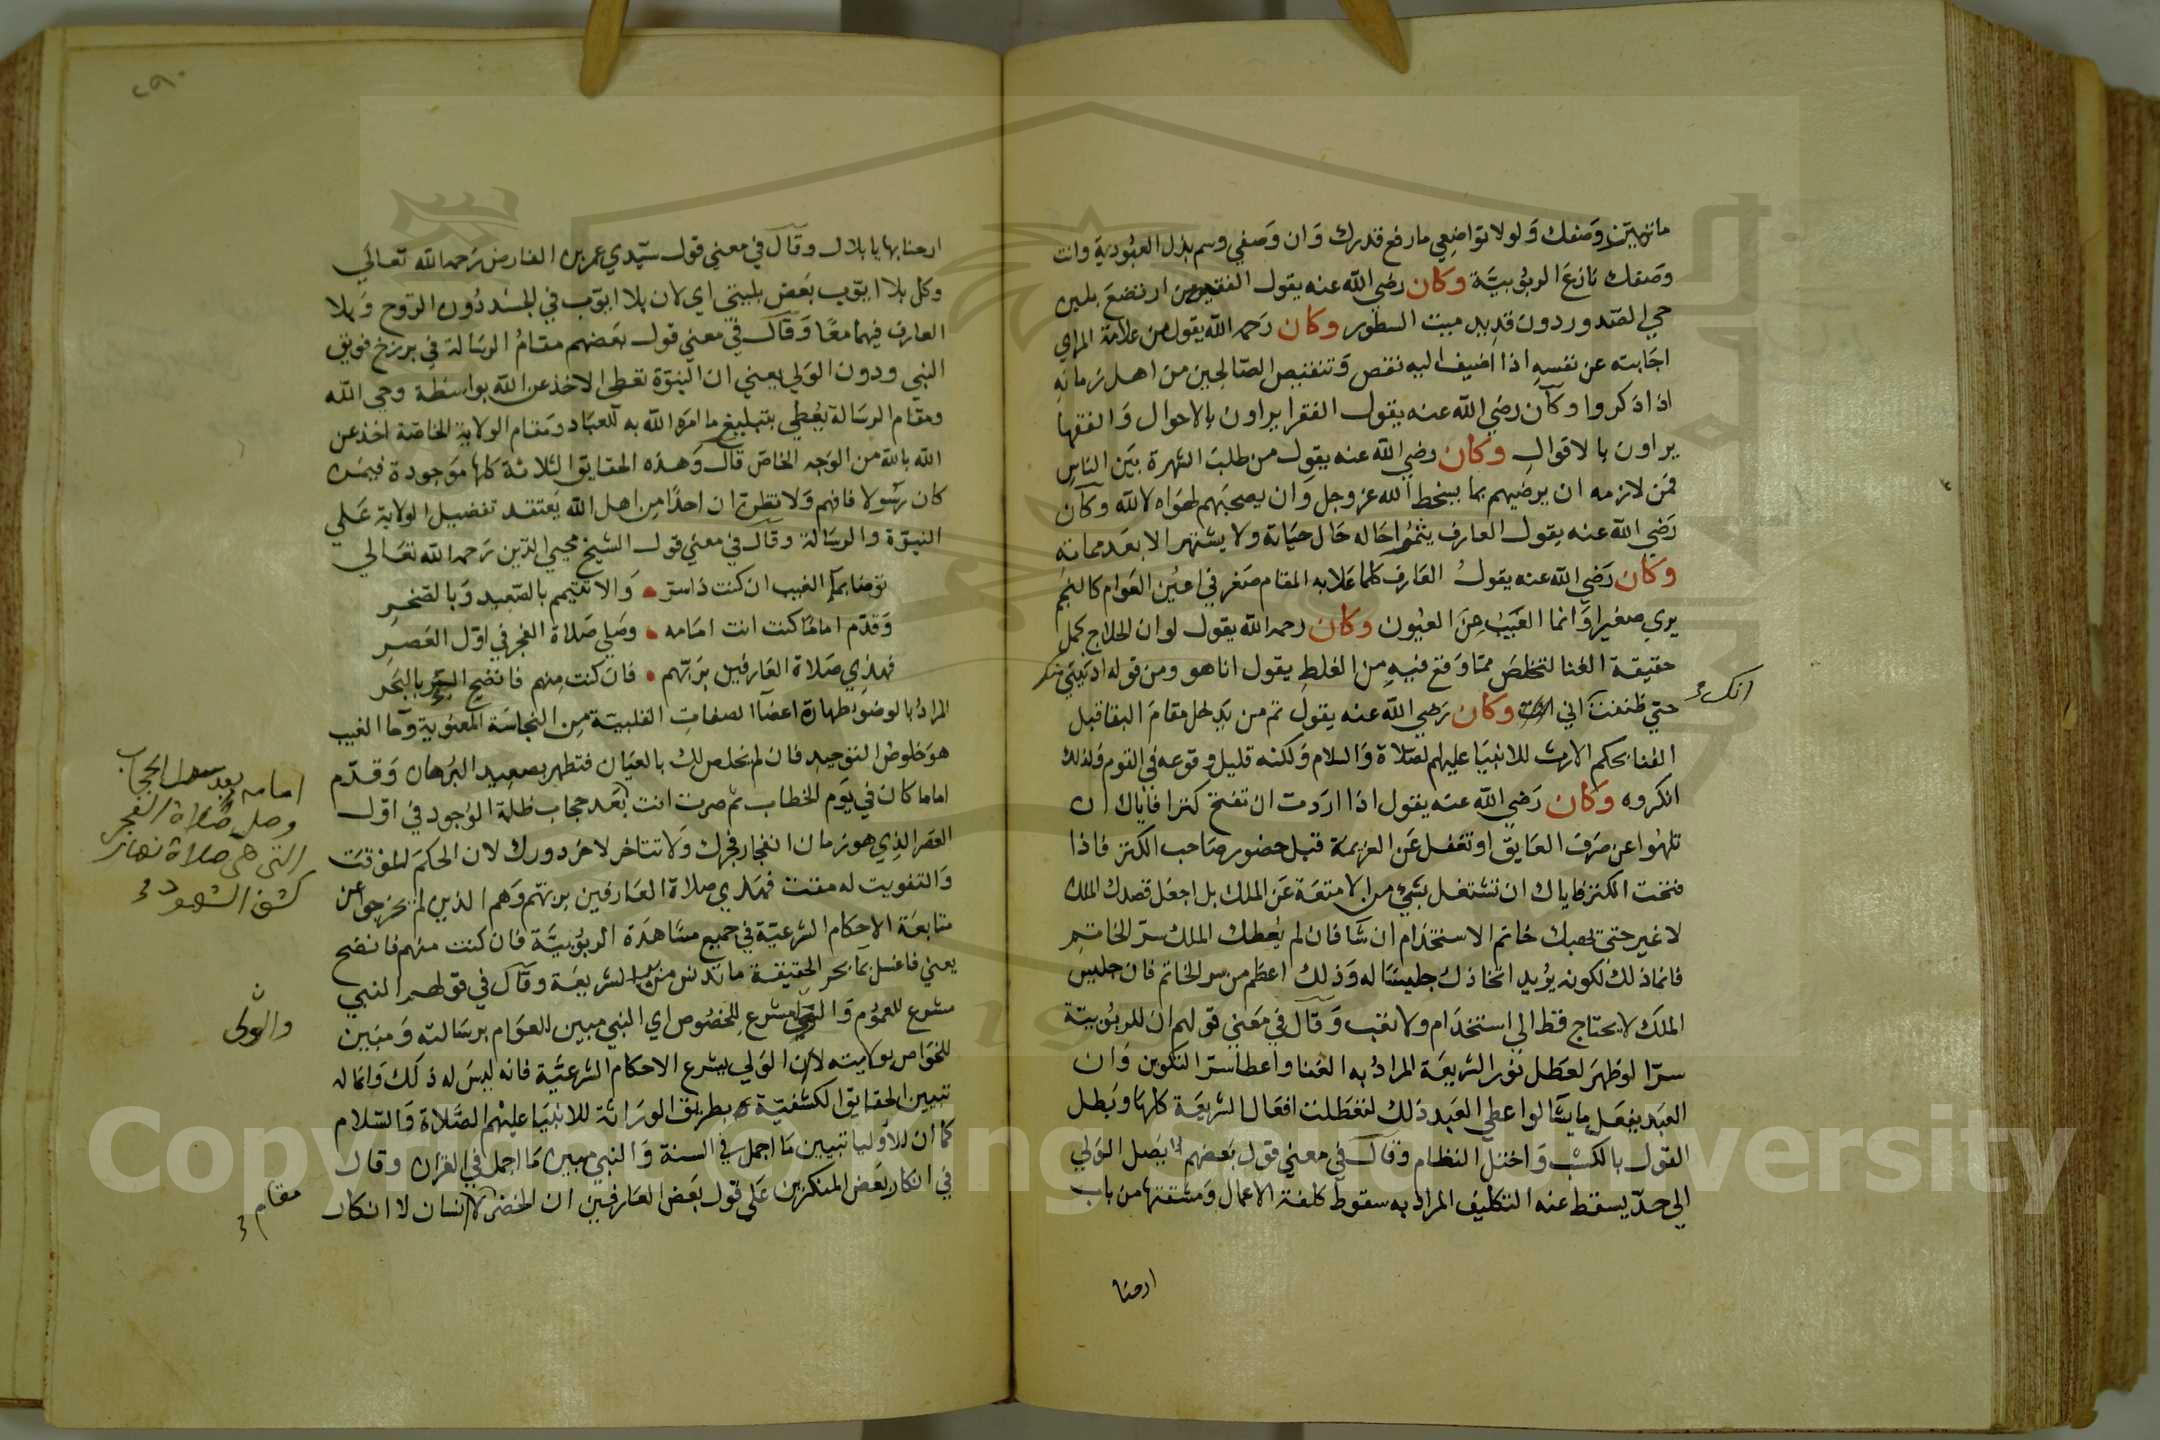 ما تهيتن وصفك ولولا تواضعي ما رفع قدرك وان وصفي وسم بذل العبودية وانت
وصفك نازع الربوبية وكان رضي الله عنه يقول الفقير من ارتضع بلبن
حي الصدور دون قديد ميت السطور وكان رحمه الله يقول من علامة المراي
اجابته عن نفسه اذا اضيف اليه نقص وتنقيص الصالحين من اهل زمانه
اذا ذكروا وكان رضي الله عنه يقول الفقرا يراون بالاحوال والفقها
يراون بالاقوال وكان رضي الله عنه يقول من طلب الشهرة بين الناس
فمن لازمه ان يرضيهم بما يسخط الله عز وجل وان يصحبهم لهواه لا لله وكان
رضي الله عنه يقول العارف ينمو حاله حال حياته ولا يشتهر الا بعد مماته
وكان رضي الله عنه يقول العارف كلما علا به المقام صغر في اعين العوام كالنجم
يري صغيرا وانما العيب من العيون وكان رحمه الله يقول لو ان الحلاج كمل
حقيقة الفنا لتخلص مما وقع فيه من الغلط يقول انا هو ومن قوله ادنيتني منك
حتي ظننت اني وكان رضي الله عنه يقول ثم من يدخل مقام البقا قبل
انك
الفنا بحكم الارث للانبيا عليهم الصلاة والسلام ولكنه قليل وقوعه في القوم ولذلك
انكروه وكان رضي الله عنه يقول اذا اردت ان تفتح كنزا فاياك ان
تلهوا عن صرف العايق او تغفل عن العزيمة قبل حضور صاحب الكنز فاذا
فتحت الكنز فاياك ان تشتغل بشي من الامتعة عن الملك بل اجعل قصدك الملك
لا غير حتي يهبك خاتم الاستخدام ان شا فان لم يعطك الملك سر الخاتم
فانما ذلك لكونه يريد اتخاذك جليسا له وذلك اعظم من سر الخاتم فان جليس
الملك لا يحتاج قط الي استخدام ولا تعب وقال في معني قولهم ان للربوبية
سرا لو ظهر لعطل نور الشريعة المراد به الغنا واعطا سر التكوين وان
العبد يفعل ما يشا لو اعطي العبد ذلك لتعطلت افعال الشريعة كلها وبطل
القول بالكسب واختل النظام وقال في معني قول بعضهم يصل الولي
الي حد يسقط عنه التكليف المراد به سقوط كلفة الاعمال ومشقتها من باب
ارحنا
٢٩٠
ارحنا بها يا بلال وقال في معني قول سيدي عمر بن الفارض رحمه الله تعالي
وكل بلا ايوب بعض بليتي اي لان بلا ايوب في الجسد دون الروح وبلا
العارف فيهما معا وقال في معني قول بعضهم مقام الرسالة في برزخ فويق
النبي ودون الولي يعني ان النبوة تعطي الاخذ عن الله بواسطة وحي الله
ومقام الرسالة يعطي بتبليغ ما امره الله به للعباد ومقام الولاية الخاصة اخذ عن
الله بالله من الوجه الخاص قال وهذه الحقايق الثلاثة كلها موجودة فيمن
كان رسولا فافهم ولا تظن ان احدا من اهل الله يعتقد تفضيل الولاية علي
النبوة والرسالة وقال في معني قول الشيخ محيي الدين رحمه الله تعالي
توضا بما الغيب ان كنت ذا سر والا تيمم بالصعيد وبالصخر
وقدم اماما كنت انت امامه وصلي صلاة الفجر في اول العصر
فهذي صلاة العارفين بربهم فان كنت منهم فانضح البر بالبحر
المراد بالوضو طهارة اعضا الصفات القلبية من النجاسة المعنوية وما الغيب
هو خلوص التوحيد فان لم يخلص لك بالعيان فتطهر بصعيد البرهان وقدم
اماما كان في يوم الخطاب ثم صرت انت بعد حجاب ظلمة الوجود في اول
امامه بعد سدل الحجاب
وصل صلاة الفجر
التي هي صلاة نهار
كشف الشهود
العصر الذي هو زمان انفجار فجرك ولا تتاخر لاخر دورك لان الحكم للوقت
والتفويت له مقت فهذي صلاة العارفين بربهم وهم الذين لم يخرجوا عن
متابعة الاحكام الشرعية في جميع مشاهدة الربوبية فان كنت منهم فانضح
يعني فاغسل بما بحر الحقيقة ما تدنس من بر الشريعة وقال في قولهم النبي
مشرع للعموم والولي مشرع للخصوص اي النبي مبين للعوام برسالته ومبين
والولي
للخواص بولايته لا ان الولي يشرع الاحكام الشرعية فانه ليس له ذلك وانما له
تبيين الحقايق الكشفية بطريق الوراثة للانبيا عليهم الصلاة والسلام
كما ان للاوليا تبيين ما اجمل في السنة والنبي مبين ما اجمل في القران وقال
في انكار بعض المنكرين علي قول بعض العارفين ان الخضر لا انسان لا انكار
مقام
Copyright © King Saud University